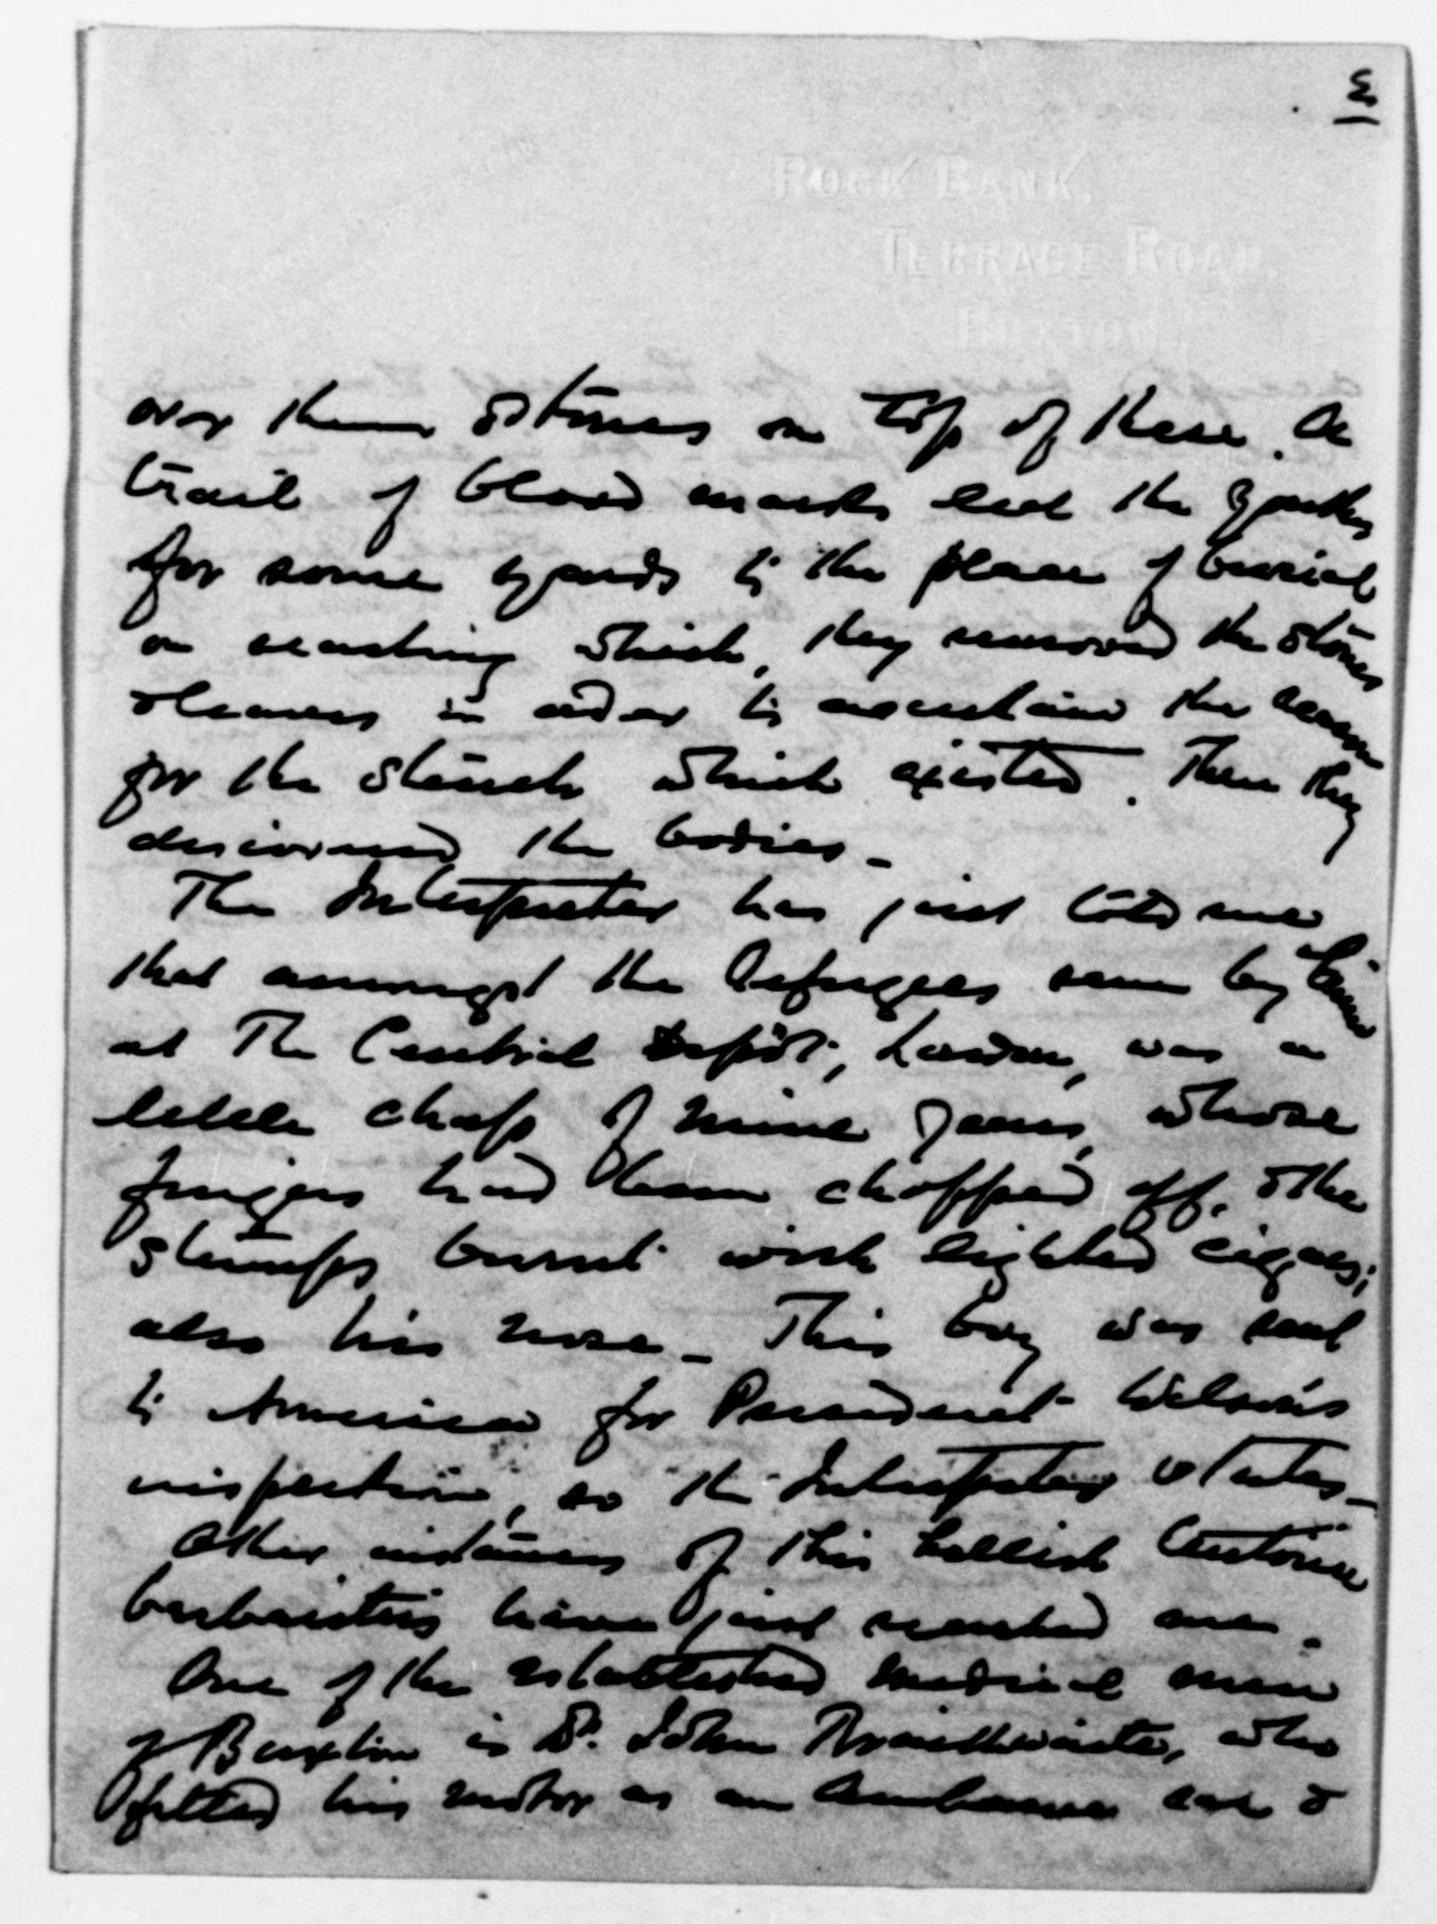 3
ROCK BANK,
TERRACE ROAD,
BUXTON.
over them & stones on top of these. A
trail of blood marks led the 3 youths
for some yards to the place of burial
on reaching which, they removed the stones
& leaves in order to ascertain the reason
for the stench which existed. Then they
discovered the bodies –
The Interpreter has just told me
that amongst the Refugees seen by him
at The Central Depôt, London, was a
little chap of nine years, whose
fingers had been chopped off, & the
stumps burnt with lighted cigars;
also his nose – This boy was sent
to America for President Wilson's
inspection, so the Interpreter states –
Other instances of this hellish
barbarities have just reached me.
One of the established medical men
of Buxton is Dr. John Braithwaite, who
fitted his motor as an Ambulance car &